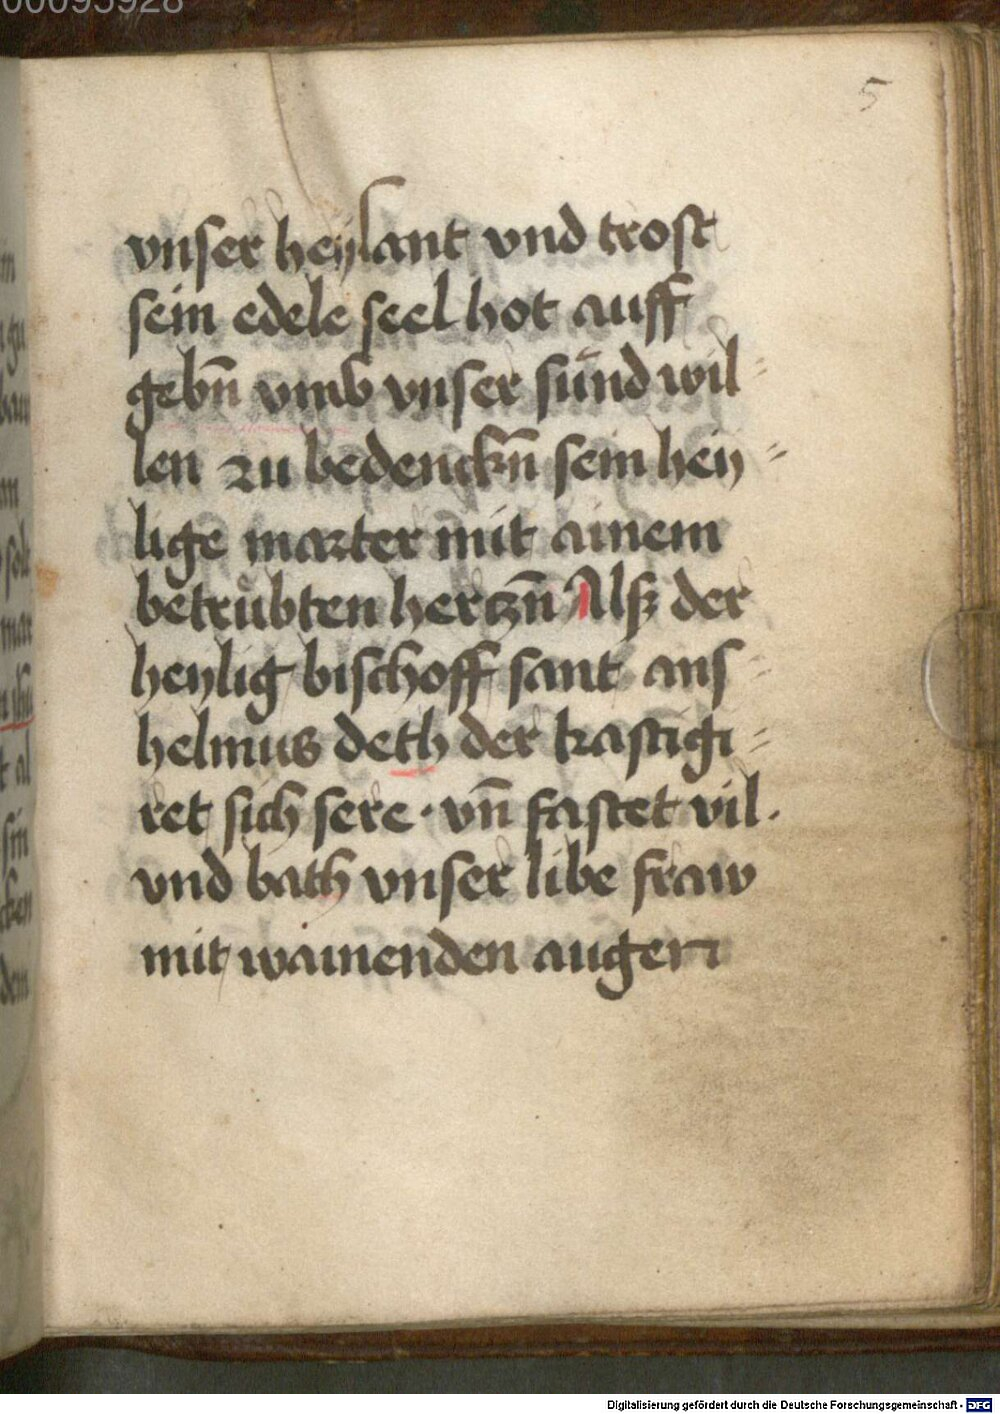 00095928
5
vnser heylant vnd trost
sein edele seel hot auff
gebn̄ vmb vnser sünd wil⸗
len zu bedenckn̄ sein hey⸗
lige marter mit ainem
betrübten hertzn̄ Alß der
heylig bischoff sant ans⸗
helmus deth der kastigi⸗
ret sich sere · vn̄ fastet vil.
vnd bath vnser libe fraw
mit wainenden augen
Digitalisierung gefördert durch die Deutsche Forschungsgemeinschaft - DFG